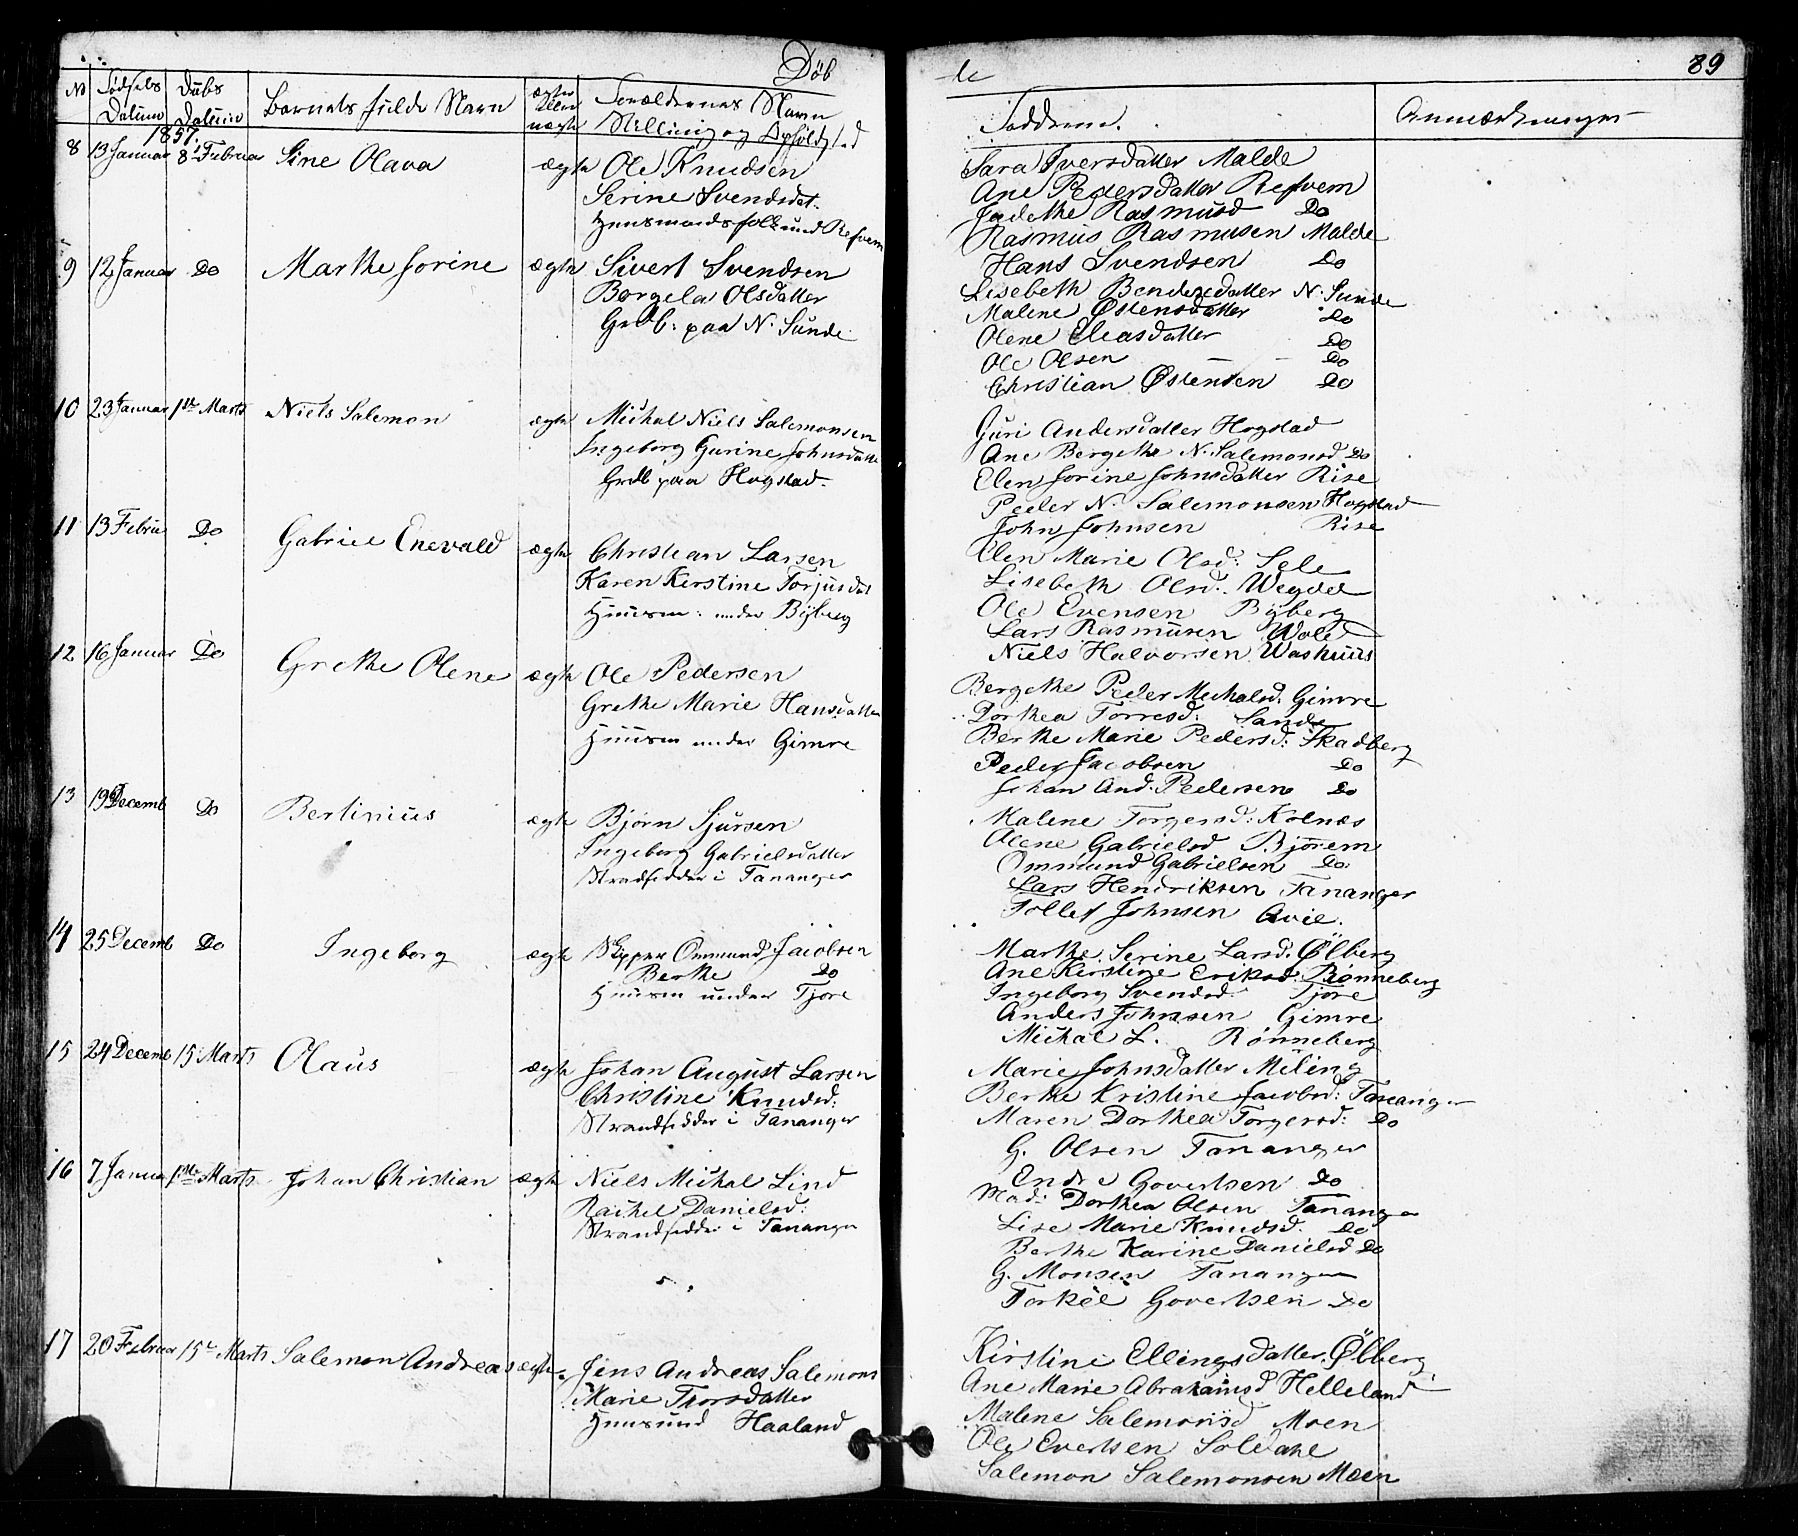 Døb
te
89
No Fødsels Datum Daabs Datum Barnets fulde Navn ægte eller uægte Forældrenes Navn Stilling og Opholdsted
Faddere.
Anmærkninger
1857.
8 13 Januar 8de Februar Sine Olava ægte Ole Knudsen
Serine Svendsdat.
Huusmandsfolk und Refvem
Sara Iversdatter Malde
Ane Pedersdatter Refvem
Rasmusd Do
Rasmus Rasmusen Malde
Hans Svendsen Do
9 12 Januar Do Marthe Sorine ægte Sivert Svendsen
Borgela Olsdatter
Grdb: paa N. Sunde.
Lisebeth Bendixdatter N. Sunde
Malene Østensdatter Do
Olene Eleasdatter Do
Ole Olsen Do
Christian Østensen Do
10 23 Januar 1ste Marts Niels Salemon ægte Michal Niels Salemonsen
Ingeborg Gurine Johnsdatte
Grdb paa Hogstad.
Guri Andersdatter Hogstad
Ane Bergethe N. Salemonsd Do
Elen Sorine Johnsdatter Rise
Peder N. Salemonsen Hogstad
John Johnsen Rise
11 13 Februa Do Gabriel Enevald ægte Christian Larsen
Karen Kirstine Torjusdat
Huusm: under Byberg
Elen Marie Olsd: Sele
Lisebeth Olsd. Wegdal
Ole Evensen Byberg
Lars Rasmusen Wold
Niels Halvorsen Washuus
12 16 Januar Do Grethe Olene ægte Ole Pedersen
Grethe Marie Hansdatter
Huusm under Gimre
Bergethe Peder Michalsd. Gimre
Dorthea Torresd: Sande
Berthe Marie Pedersd: Skadberg
Peder Jacobsen Do
Johan And. Pedersen Do
13 19 Decemb Do Bertinius ægte Bjørn Sjursen
Ingeborg Gabrielsdatter
Strandsidder i Tananger
Malene Torgersd: Kolnæs
Olene Gabrielsd Bjørem
Ommund Gabrielsen Do.
Lars Hendriksen Tananger
Tollef Johnsen
14 25 Decemb Do Ingeborg ægte Skipper Ommund Jacobsen
Berthe Do
Huusm under Tjore
Marthe Serine Larsd. Ølberg
Ane Kirstine Eriksd. Rønneberg
Ingeborg Svendsd. Tjore
Anders Johnsen Gimre
Michal L. Rønneberg
15 24 Decemb 15 Marts Olaus ægte Johan August Larsen
Christine Knudsd:
Strandsidder i Tananger
Marie Johnsdatter Meling
Berthe Kristine Jacobsd: Tananger
Maren Dorthea Torgersd: Do
G. Olsen Tananger
Endre Govertsen Do
16 7 Janua 1ste Marts Johan Christian ægte Niels Michal Lind
Rachel Danielsd:
Strandsidder i Tananger
Mad: Dorthea Olsen Tananger
Lise Marie Knudsd. Do
Berthe Karine Danielsd Do
G. Monsen Tananger
Torkel Govertsen Do
17 20 Februar 15de Marts Salemon Andreas ægte Jens Andreas Salemons
Marie Thorsdatter
Huusm und Haaland
Kirstine Ellingsdatter Ølberg
Ane Marie Abrahamsd Helleland
Malene Salemonsd Moen
Ole Evertsen Soldahl
Salemon Salemonsen Moen